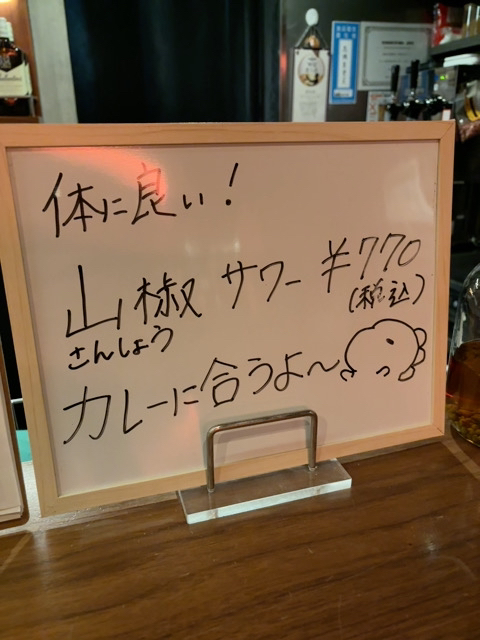 体に良い!
山椒サワー ¥770
さんしょう (税込)
カレーに合うよ〜